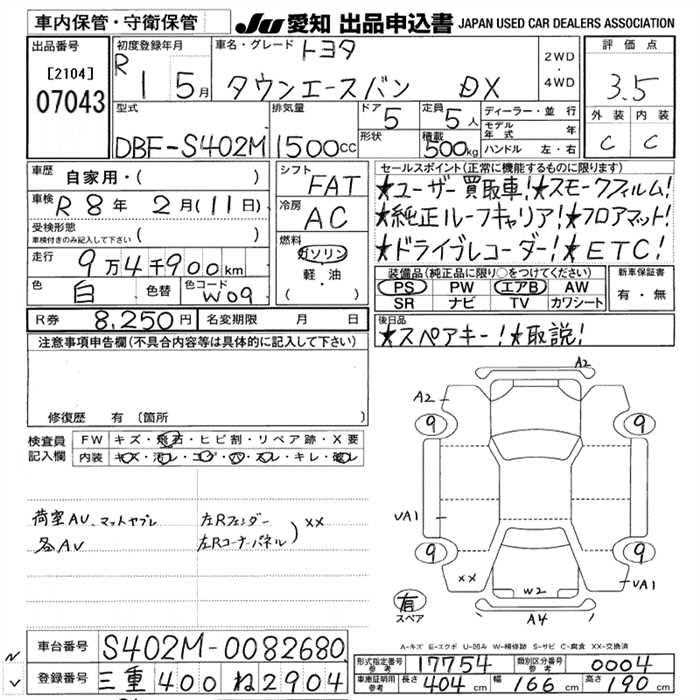 車内保管・守衛保管
JU 愛知 出品申込書 JAPAN USED CAR DEALERS ASSOCIATION
出品番号
[2104]
07043
初度登録年月
R 1 5月
車名・グレード トヨタ
タウンエースバン DX
2WD
・
4WD
評価点
3.5
外装 内装
C C
型式
DBF-S402M
排気量
1500cc
ドア
5
形状
定員
5人
積載
500kg
ディーラー・並行
モデル年式 年
ハンドル 左・右
車歴 自家用・( )
車検 R 8年 2月(11日)
受検形態
車検付きのみ記入して下さい ( )
走行 9万4千900km
色 白 色替 色コード W09
シフト
FAT
冷房
AC
燃料
ガソリン
軽・油
( )
セールスポイント(正常に機能するものに限ります)
★ユーザー買取車!★スモークフィルム!
★純正ルーフキャリア!★フロアマット!
★ドライブレコーダー!★ETC!
装備品(純正品に限り○をつけてください)
PS PW エアB AW
SR ナビ TV カワシート
新車保証書
有・無
R券 8,250円 名変期限 月 日
後日品
★スペアキー!★取説!
注意事項申告欄(不具合内容等は具体的に記入して下さい)
修復歴 有(箇所 )
検査員記入欄
FW キズ・飛石・ヒビ割・リペア跡・X要
内装 キズ・汚レ・コゲ・穴・スレ・キレ・破レ
荷室AU、マットヤブレ
各AU
左Rフェンダー
左Rコーナーパネル
) ××
A2
A2
9
9
UA1
9
9
××
UA1
W2
A4
有
スペア
A-キズ E-エクボ U-凹み W-補修跡 S-サビ C-腐食 XX-交換済
車台番号 S402M-0082680
登録番号 三重400 ね2904
形式指定番号 参考 17754
類別区分番号 参考 0004
車庫証明用 参考 長さ 404cm 幅 166cm 高さ 190cm